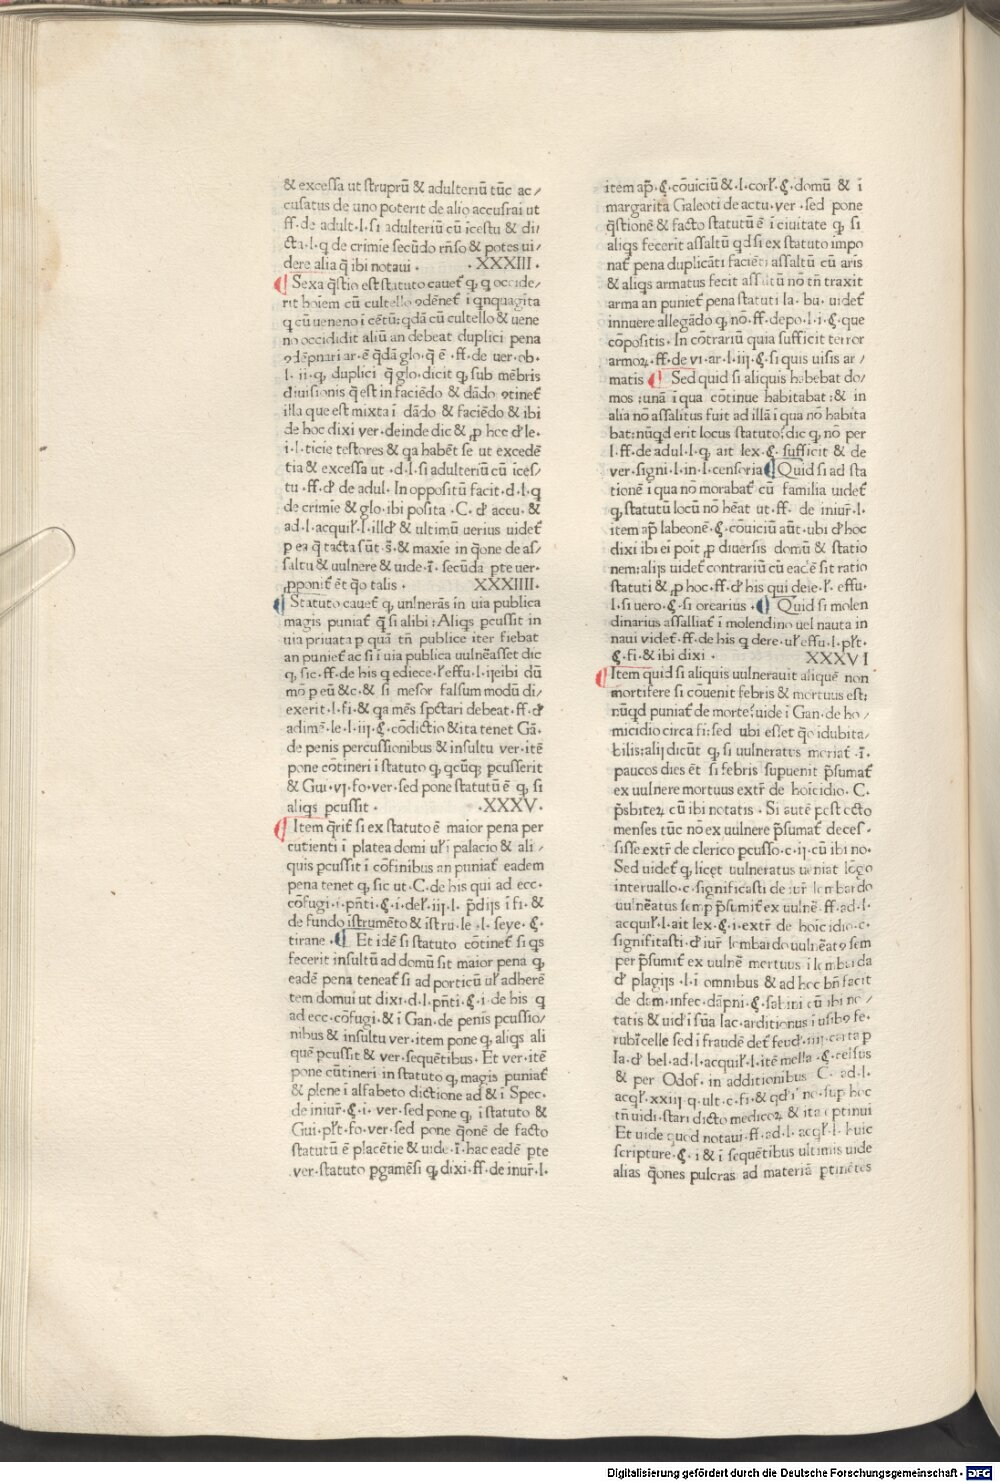 & excessa ut struprū & adulteriū tūc ac/
cusatus de uno poterit de alio accusrai ut
ff. de adult. l. si adulteriū cū īcestu & di/
cta. l. q̄ de crimīe secūdo rn̄so & potes ui/
dere alia q̄ ibi notaui . .XXXIII.
¶ Sexa q̄stio est statuto cauet̄ q, q occide/
rit hoīem cū cultello ꝯdēnet̄ ī qnquagīta
q cū ueneno ī cētū: qdā cū cultello & uene
no occididit aliū an debeat duplici pena
ꝯdēpnari ar. ē q̄dā glo. q̄ ē . ff. de uer. ob.
l. ii. q, duplici q̄ glo. dicit q, sub mēbris
diuisionis q̄ est in faciēdo & dādo ꝯtinet̄
illa que est mixta ī dādo & faciēdo & ibi
de hoc dixi ver. deinde dic & ꝓ hoc đ le.
i. l. ticie testores & qa habēt se ut excedē
tia & excessa ut . d. l. si adulteriū cū īces/
tu . ff. đ de adul. In oppositū facit . d. l. q
de crimie & glo. ibi posita . C. đ accu. &
ad. l. acquil̄. l. illđ & ultimū uerius uidet̄
p ea q̄ tacta sūt . s̄. & maxīe in q̄one de as/
saltu & uulnere & uide. ī. secūda pte uer.
ꝓponit̄ ēt q̄o talis . XXXIIII.
¶ Statuto cauet̄ q, unlnerās in uia publica
magis puniat̄ q̄ si alibi: Aliqs pcussit in
uia priuata p quā tn̄ publice iter fiebat
an puniet̄ ac si ī uia publica uulnēasset dic
q, sic. ff. de his q ediece. ł effu. l. ijeibi dū
mō p eū &c. & si mēsor falsum modū di/
exerit. l. fi. & qa mēs spc̄tari debeat. ff. đ
adimē. le. l. iij. §. cōdictio &ita tenet Gā.
de penis percussionibus & insultu ver. itē
pone cōtineri ī statuto q, qcūq; pcusserit
& Gui. vj. fo. ver. sed pone statutū ē q, si
aliqs pcussit . .XXXV.
¶ Item q̄rit̄ si ex statuto ē maior pena per
cutienti ī platea domi uł ī palacio & ali/
quis pcussit ī cōfinibus an puniat̄ eadem
pena tenet q, sic ut . C. de his qui ad ecc.
cōfugi. ī. pn̄ti. §. i. del̄. iij. l. p̄dijs ī fi. &
de fundo īstrumēto & īstru. le .l. seye. §.
tirane . ¶ Et idē si statuto cōtinet̄ si qs
fecerit insultū ad domū sit maior pena q,
eadē pena teneat̄ si ad porticū uł adherē
tem domui ut dixi. d. l. pn̄ti. §. i. de his q
ad ecc. cōfugi. & ī Gan. de penis pcussio/
nibus & insultu ver. item pone q, aliqs ali
quē pcussit & ver. sequētibus. Et ver. itē
pone cūtineri in statuto q, magis puniat̄
& plene ī alfabeto dictione ad & ī Spec.
de iniur̄. §. i. ver. sed pone q, ī statuto &
Gui. pł. fo. ver. sed pone q̄onē de facto
statutū ē placētie & uide. ī. hac eadē pte
ver. statuto pgamēsi q, dixi. ff. de inur̄. l.
item ap̄. §. cōuiciū & .l. cor̄. §. domū & ī
margarita Galeoti de actu. ver . sed pone
q̄stionē & facto statutū ē ī ciuitate q, si
aliqs fecerit assaltū qd si ex statuto impo
nat̄ pena duplicāti faciēti assaltū cū aris
& aliqs armatus fecit assaltū nō tn̄ traxit
arma an puniet̄ pena statuti Ia. bu. uidet̄
innuere allegādo q, nō. ff. depo. l. i. §. que
cōpositis. In cōtrariū quia sufficit terror
armoꝝ. ff. de vi. ar. l. iij. §. si quis uisis ar/
matis ¶ Sed quid si aliquis habebat do/
mos : unā ī qua cōtinue habitabat: & in
alia nō assalitus fuit ad illā ī qua nō habita
bat: nūqd erit locus statuto: dic q, nō per
l. ff. de adul. l. q, ait lex. §. sufficit & de
ver. signi. l. in. l. censoria ¶ Quid si ad sta
tionē ī qua nō morabat̄ cū familia uidet̄
q, statutū locū nō hēat ut. ff. de iniur̄. l.
item ap̄ labeonē. §. cōuiciū aūt. ubi đ hoc
dixi ibi ei poit ꝓ diuersis domū & statio
nem: alijs uidet̄ contrariū cū eadē sit ratio
statuti & ꝓ hoc. ff. đ his qui deie. ł. effu.
l. si uero. §. si orcarius . ¶ Quid si molen
dinarius assalliat̄ ī molendino uel nauta in
naui videt̄. ff. de his q dere. uł effu. l. pł.
§. fi. & ibi dixi . XXXVI
¶ Item quid si aliquis uulnerauit aliquē non
mortifere si cōuenit febris & mortuus est:
nūqd puniat̄ de morte: uide ī Gan. de ho/
micidio circa fi: sed ubi esset q̄o īdubita/
bilis: alij dicūt q, si uulneratus moriat̄ . ī.
paucos dies ēt si febris supuenit p̄sumat̄
ex uulnere mortuus extr̄. de hoīcidio. C.
p̄sbiteꝝ cū ibi notatis . Si autē post octo
menses tūc nō ex uulnere p̄sumat̄ deces/
sisse extr̄. de clerico pcusso. c. ij. cū ibi no.
Sed uidet̄ q, licet uulneratus ueniat lōgo
interuallo. c. significasti de iur̄ lombardo
uulnēatus semp p̄sumit̄ ex uulnē. ff. ad. l.
acquil̄. l. ait lex. §. i. extr̄. de hoīcidio. c.
signifitasti. đ iur̄ lombardo uulnēatꝰ sem
per p̄sumit̄ ex uulnē mortuus ī lombarda
đ plagijs . l. ī omnibus & ad hoc bn̄ facit
de dam. infec. dāpni. §. sabini cū ibi no/
tatis & uiđ ī sūa Iac. arditionus ī usibꝰ fe.
rubīcelle sed ī fraudē det̄ feuđ. iiij. carta p
Ia. đ bel. ad. l. acquil̄. l. itē mella. §. celsus
& per Odof. in additionibus C. ad. l.
acql̄. xxiij. q. ult. c. fi. & qđ ī no. sup hoc
tn̄ uidi . stari dicto medicoꝝ & ita optinui
Et uide quod notaui. ff. ad. l. acql̄. l. huic
scripture. §. i & ī sequētibus ultimis uide
alias q̄ones pulcras ad materiā ptinētes
Digitalisierung gefördert durch die Deutsche Forschungsgemeinschaft - DFG